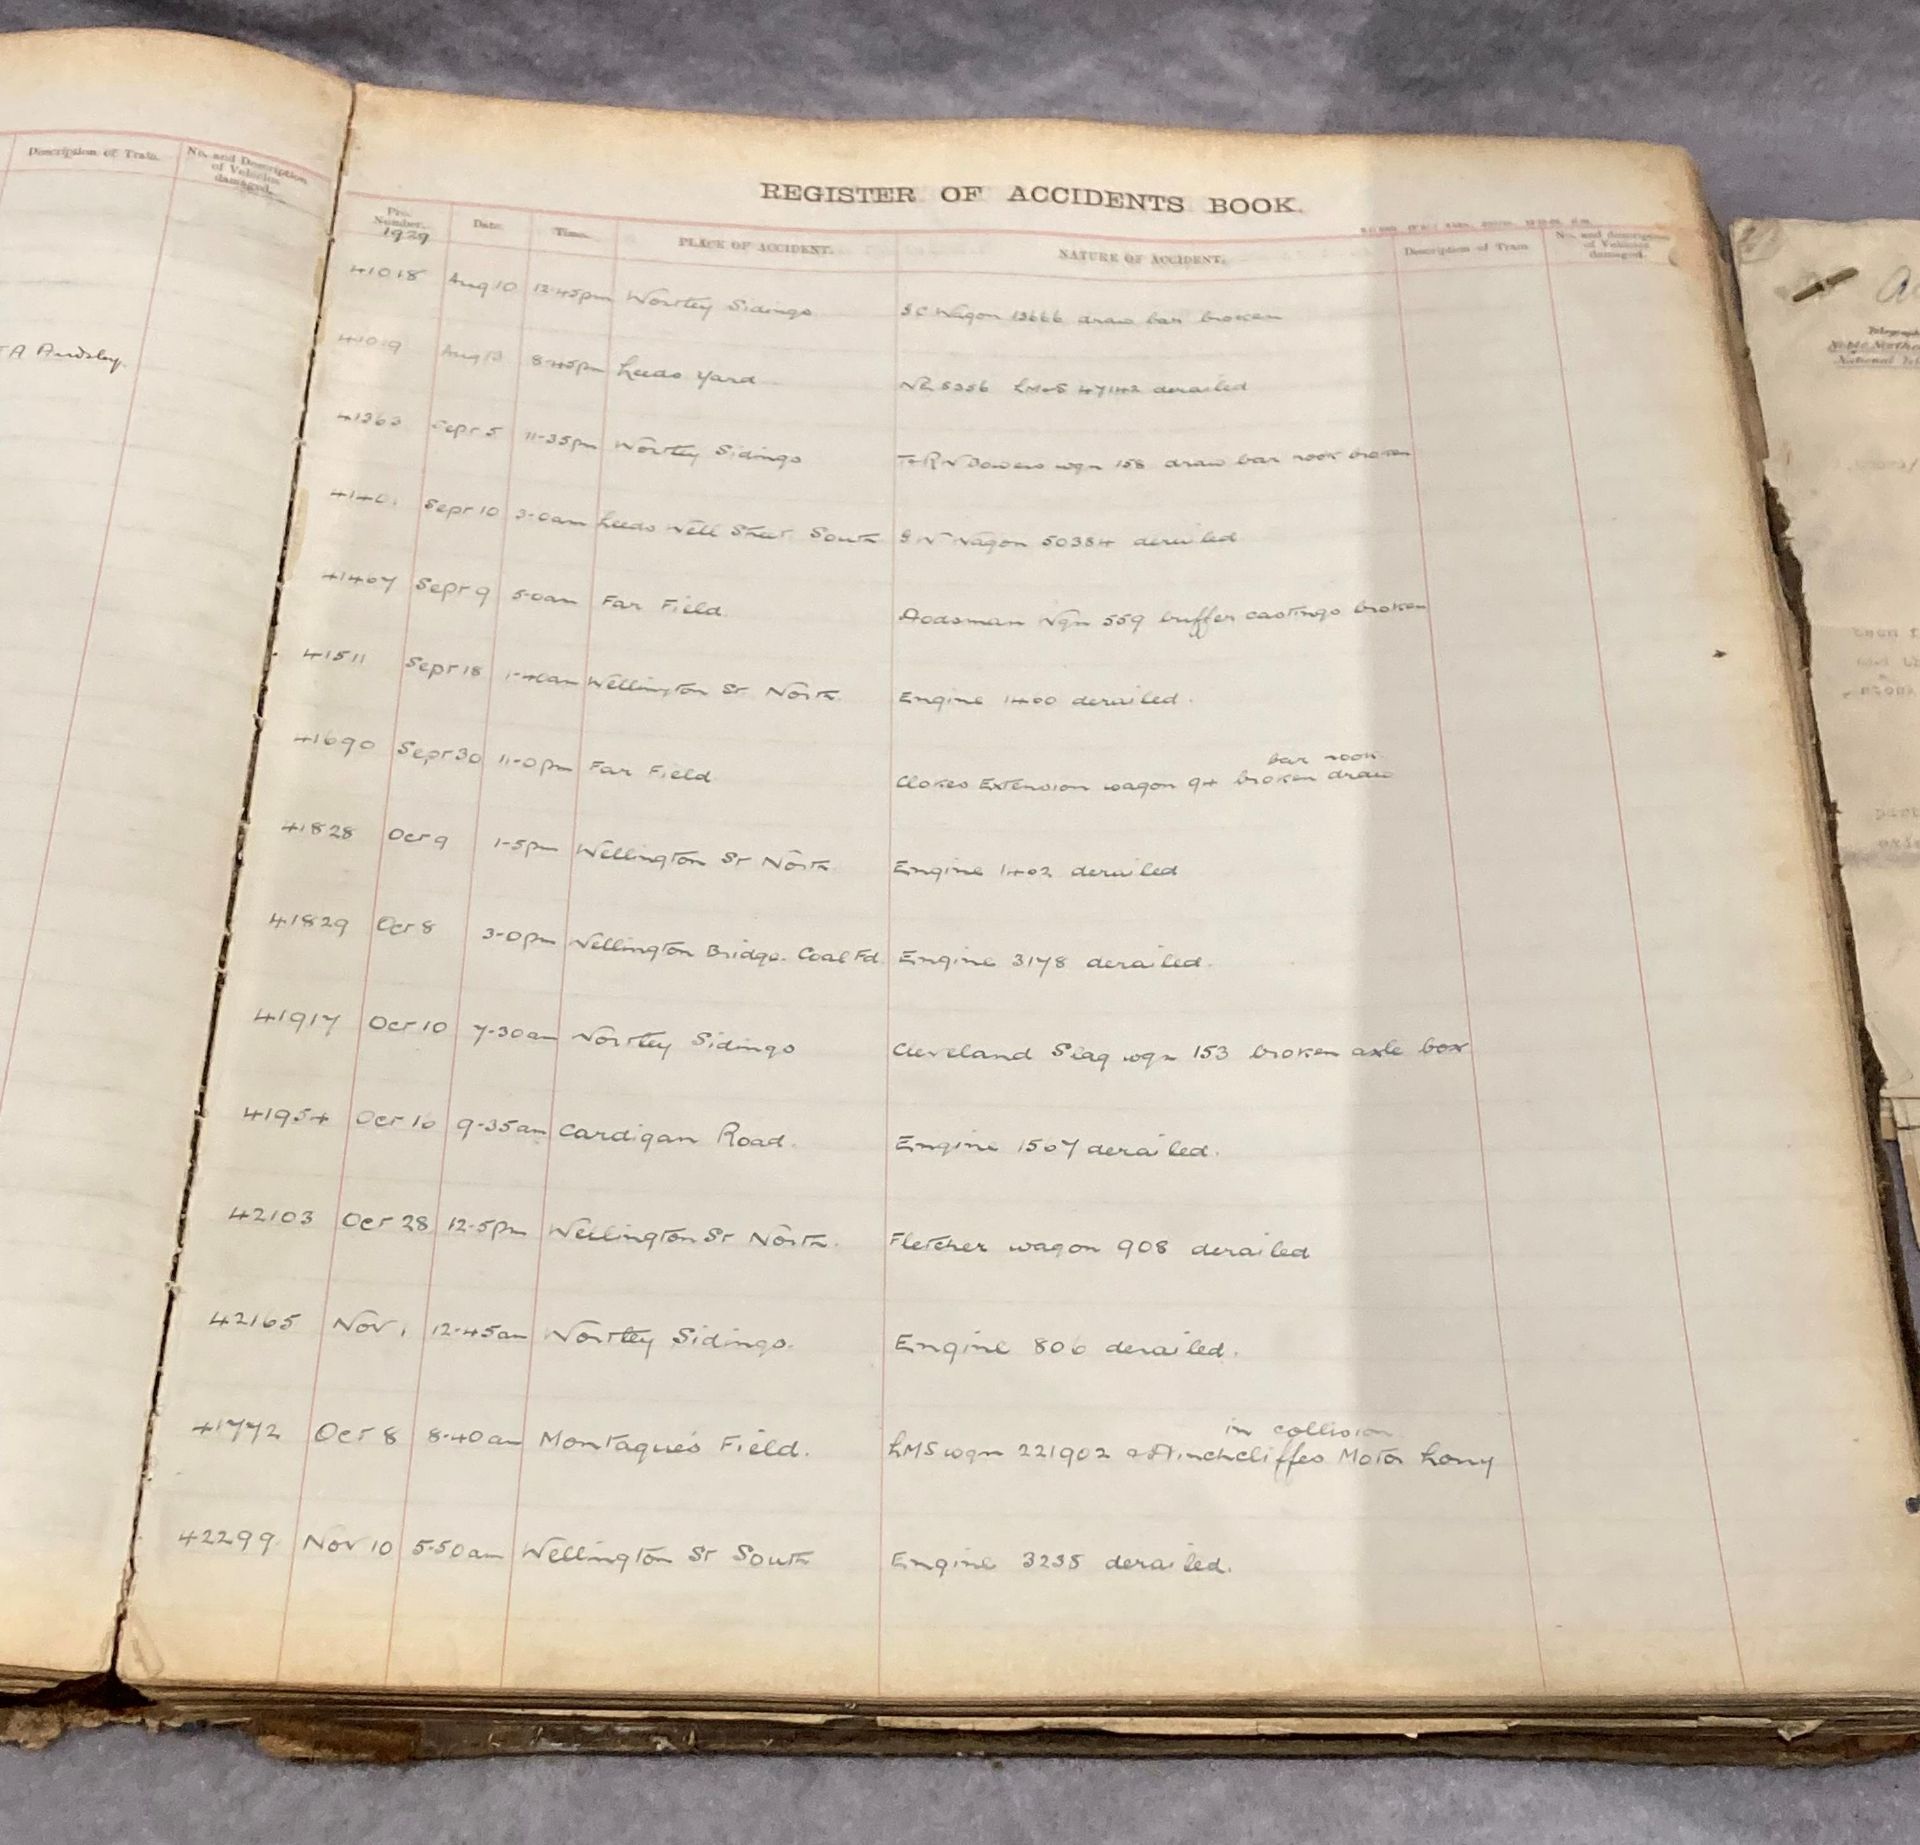 Description of Train.
No. and Description of Vehicles damaged.
TA Ardsley.
REGISTER OF ACCIDENTS BOOK.
Pro. Number. Date. Time. PLACE OF ACCIDENT. NATURE OF ACCIDENT. Description of Train No. and description of Vehicles damaged.
1929
41018 Aug 10 12-45pm Wortley Sidings Wagon 13666 draw bar broken
41019 Aug 8-45pm Leeds Yard NE 5356 LMS 47142 derailed
41363 Sept 5 11-35pm Wortley Sidings wgn 158 draw bar hook broken
Sept 10 3-0am Leeds Well Street South GN Wagon 50384 derailed
41467 Sept 9 5-0am Far Field. Wgn 559 buffer castings broken
41511 Sept 18 1-40am Wellington St North. Engine 1400 derailed.
bar hook
41690 Sept 30 11-0pm Far Field Extension wagon 94 broken draw
41828 Oct 9 1-5pm Wellington St North Engine 1402 derailed
41829 Oct 8 3-0pm Wellington Bridge. Coal Fd. Engine 3178 derailed.
41917 Oct 10 7-30am Wortley Sidings Cleveland Slag wgn 153 broken axle box
41954 Oct 10 9-35am Cardigan Road. Engine 1507 derailed.
42103 Oct 28 12-5pm Wellington St North. Fletcher wagon 908 derailed
42165 Nov 1 12-45am Wortley Sidings. Engine 806 derailed.
in collision
41772 Oct 8 8-40am Montague's Field. LMS wgn 221902 & Hinchcliffes Motor Lorry
42299 Nov 10 5-50am Wellington St South Engine 3235 derailed.